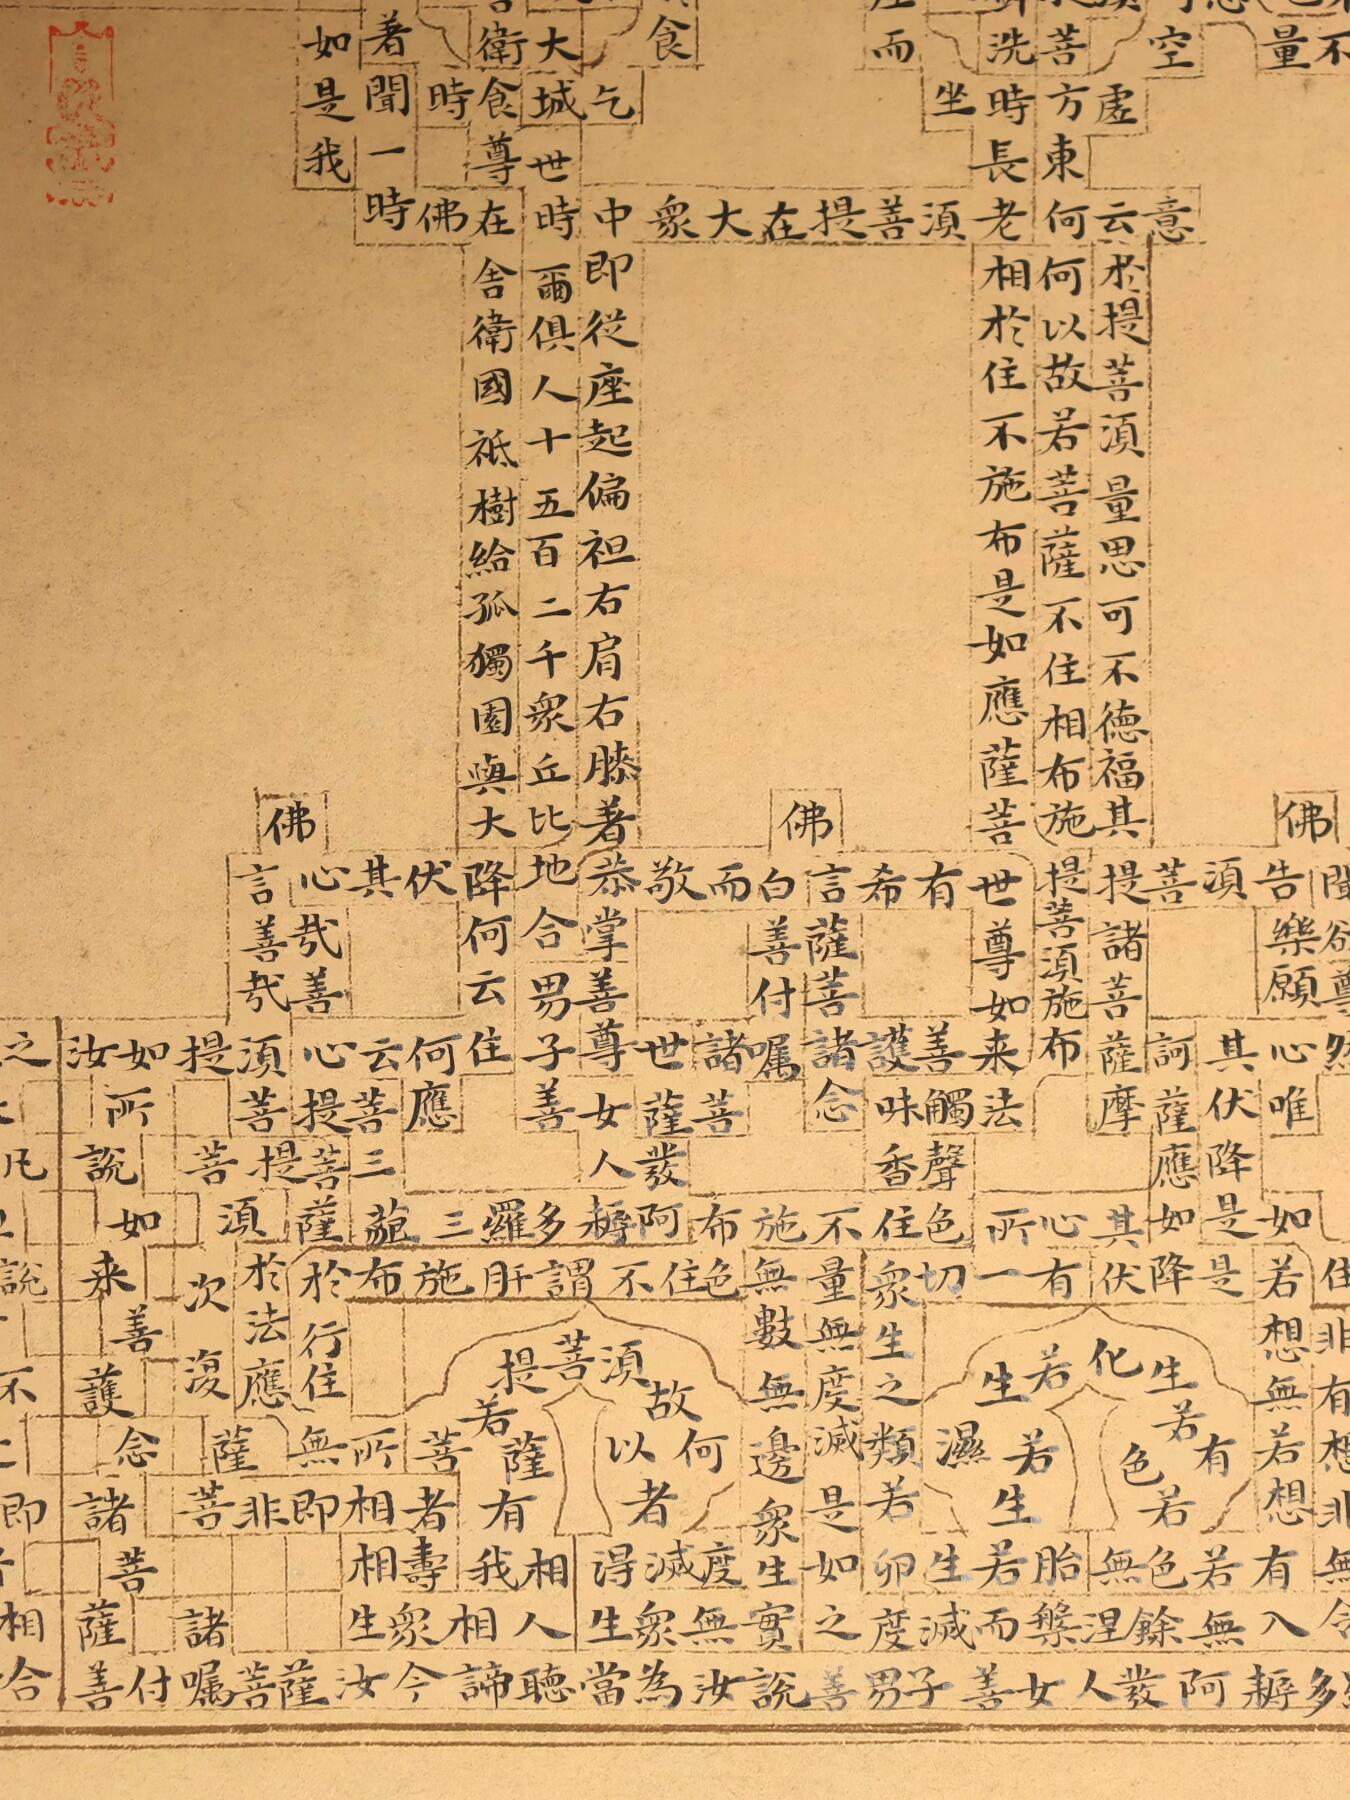 如是我
著聞一時佛在
舍衛國祇樹給孤獨園與大
比丘眾千二百五十人俱爾時世
大城乞
衛食尊
時
食
而
坐
洗時長老
須菩提在大眾中
即從座起偏袒右肩右膝著
地合
恭敬而白
佛
言希有世尊如来
善護
念諸菩薩
善付囑諸菩薩
世尊善
男子善
女人
發阿耨多羅三藐三菩提心
云何應住
云何降伏其心
佛
言善哉
善哉
須菩提
如汝所說
如来
善護念諸菩薩
善付囑菩薩汝今諦聽當為汝說善男子善女人發阿耨多
空
量不
菩方東
虛
何云意
於提菩須量思可不德福其
何以故若菩薩不住相布施
菩薩應如是布施不住於相
提菩須施布
佛
告須菩提
諸菩薩摩訶薩應如是降伏其心
樂願
唯
然
如是降伏其心
所有一切眾生之類若卵生若胎
生若濕生
若化生
若有色若
無色若有想
若無想若
非有想非無
令入無餘涅槃而滅度之
如是滅度無量無數無邊眾生實
無眾生得滅度
者
何以故
須菩提
若菩薩有我相人相眾生相壽者相
即非菩薩
復次
須菩提
菩薩於法應無所住
行於布施
所謂不住色布施
不住聲香味觸法
布施